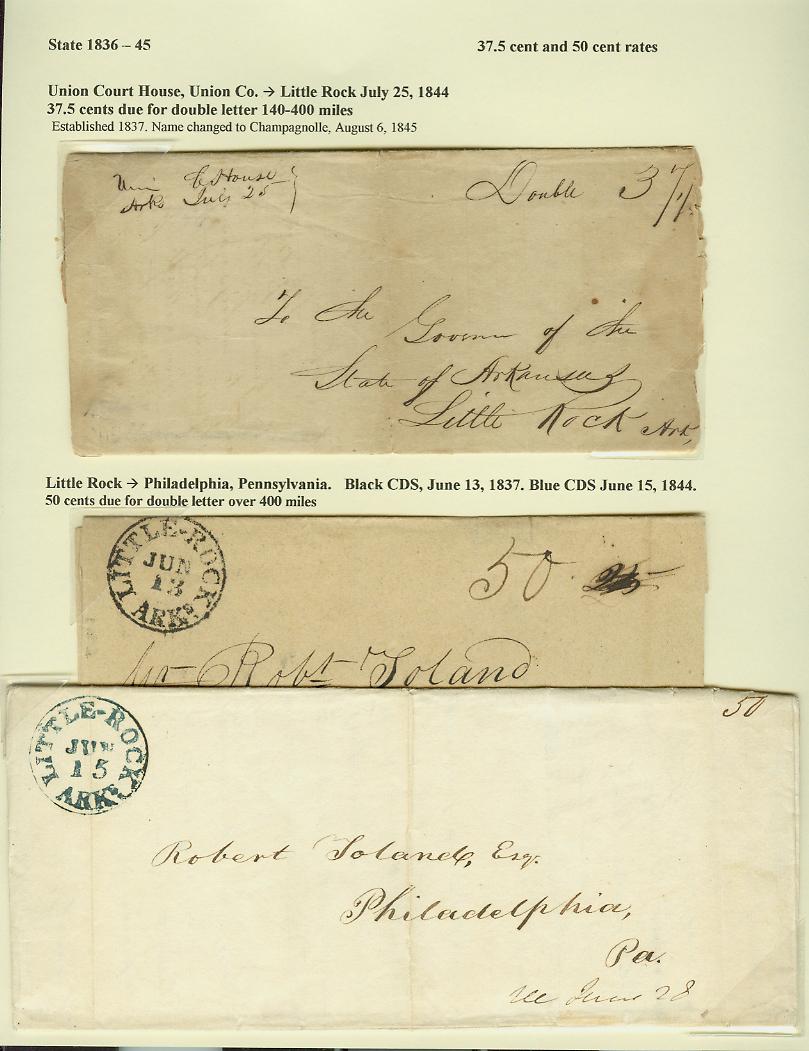 State 1836 – 45
37.5 cent and 50 cent rates
Union Court House, Union Co. → Little Rock July 25, 1844
37.5 cents due for double letter 140-400 miles
Established 1837. Name changed to Champagnolle, August 6, 1845
C House
Arks July 25
Double 37½
To the
Governor of the
State of Arkansas
Little Rock Ark,
Little Rock → Philadelphia, Pennsylvania. Black CDS, June 13, 1837. Blue CDS June 15, 1844.
50 cents due for double letter over 400 miles
LITTLE-ROCK
JUN
13
ARKs
50 25
Mr Robt Toland
LITTLE-ROCK
JUN
15
ARKs
50
Robert Toland, Esq.
Philadelphia,
Pa.
June 28